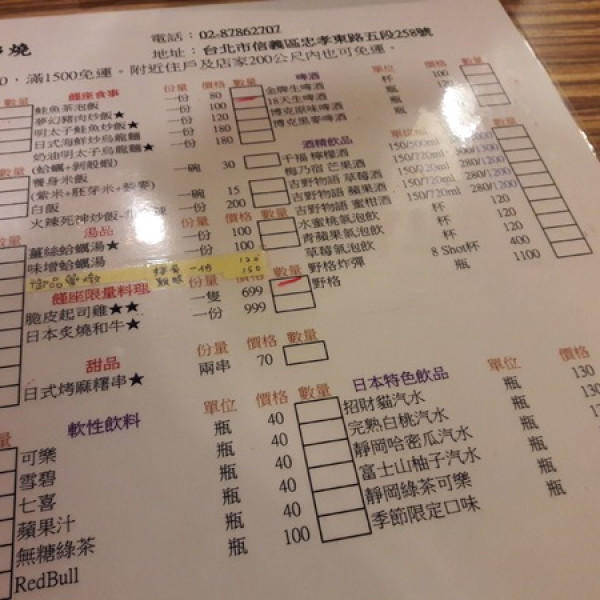 燒
電話：02-87862707
地址：台北市信義區忠孝東路五段258號
0，滿1500免運。附近住戶及店家200公尺內也可免運。
數量 饐座食事 份量 價格 數量
鮭魚茶泡飯 一份 80
夢幻豬肉炒飯★ 一份 100
明太子鮭魚炒飯★ 一份 120
日式海鮮炒烏龍麵 一份 180
奶油明太子烏龍麵★ 一份 180
(蛤蠣+剝殼蝦)
養身米飯 一碗 30
(紫米+胚芽米+藜麥)
白飯 一碗 15
火辣死神炒飯 一份 200
數量
湯品 份量 價格 數量
薑絲蛤蠣湯★ 一份 100
味增蛤蠣湯 一份 100
一份 120
150
饐座限量料理 份量 數量
脆皮起司雞★★ 一隻 699
日本炙燒和牛★ 一份 999
甜品 份量 價格 數量
日式烤麻糬串★ 兩串 70
軟性飲料 單位 價格 數量
可樂 瓶 40
雪碧 瓶 40
七喜 瓶 40
蘋果汁 瓶 40
無糖綠茶 瓶 40
RedBull 瓶 100
啤酒 單位 價格 數量
金牌生啤酒 杯 100
18天生啤酒 瓶 120
博克原味啤酒 瓶
博克黑麥啤酒 瓶
酒精飲品 單位
千福 檸檬酒 150/500ml
梅乃宿 芒果酒 150/720ml
吉野物語 草莓酒 150/720ml 280/1200
吉野物語 蘋果酒 150/720ml 280/1200
吉野物語 蜜柑酒 150/720ml 280/1200
水蜜桃氣泡飲 杯 120
青蘋果氣泡飲 杯 120
草莓氣泡飲 杯 120
野格炸彈 8 Shot杯 400
野格 瓶 1100
日本特色飲品 單位 價格
招財貓汽水 瓶 130
完熟白桃汽水 瓶 130
靜岡哈密瓜汽水 瓶
富士山柚子汽水 瓶
靜岡綠茶可樂 瓶
季節限定口味 瓶